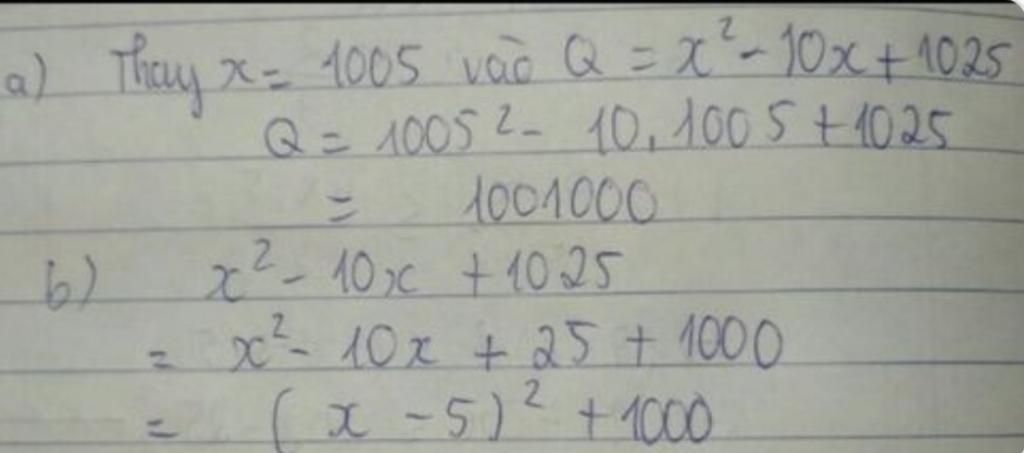 a) Thay x = 1005 vào Q = x² - 10x + 1025
Q = 1005² - 10.1005 + 1025
= 1001000
b) x² - 10x + 1025
= x² - 10x + 25 + 1000
= (x - 5)² + 1000